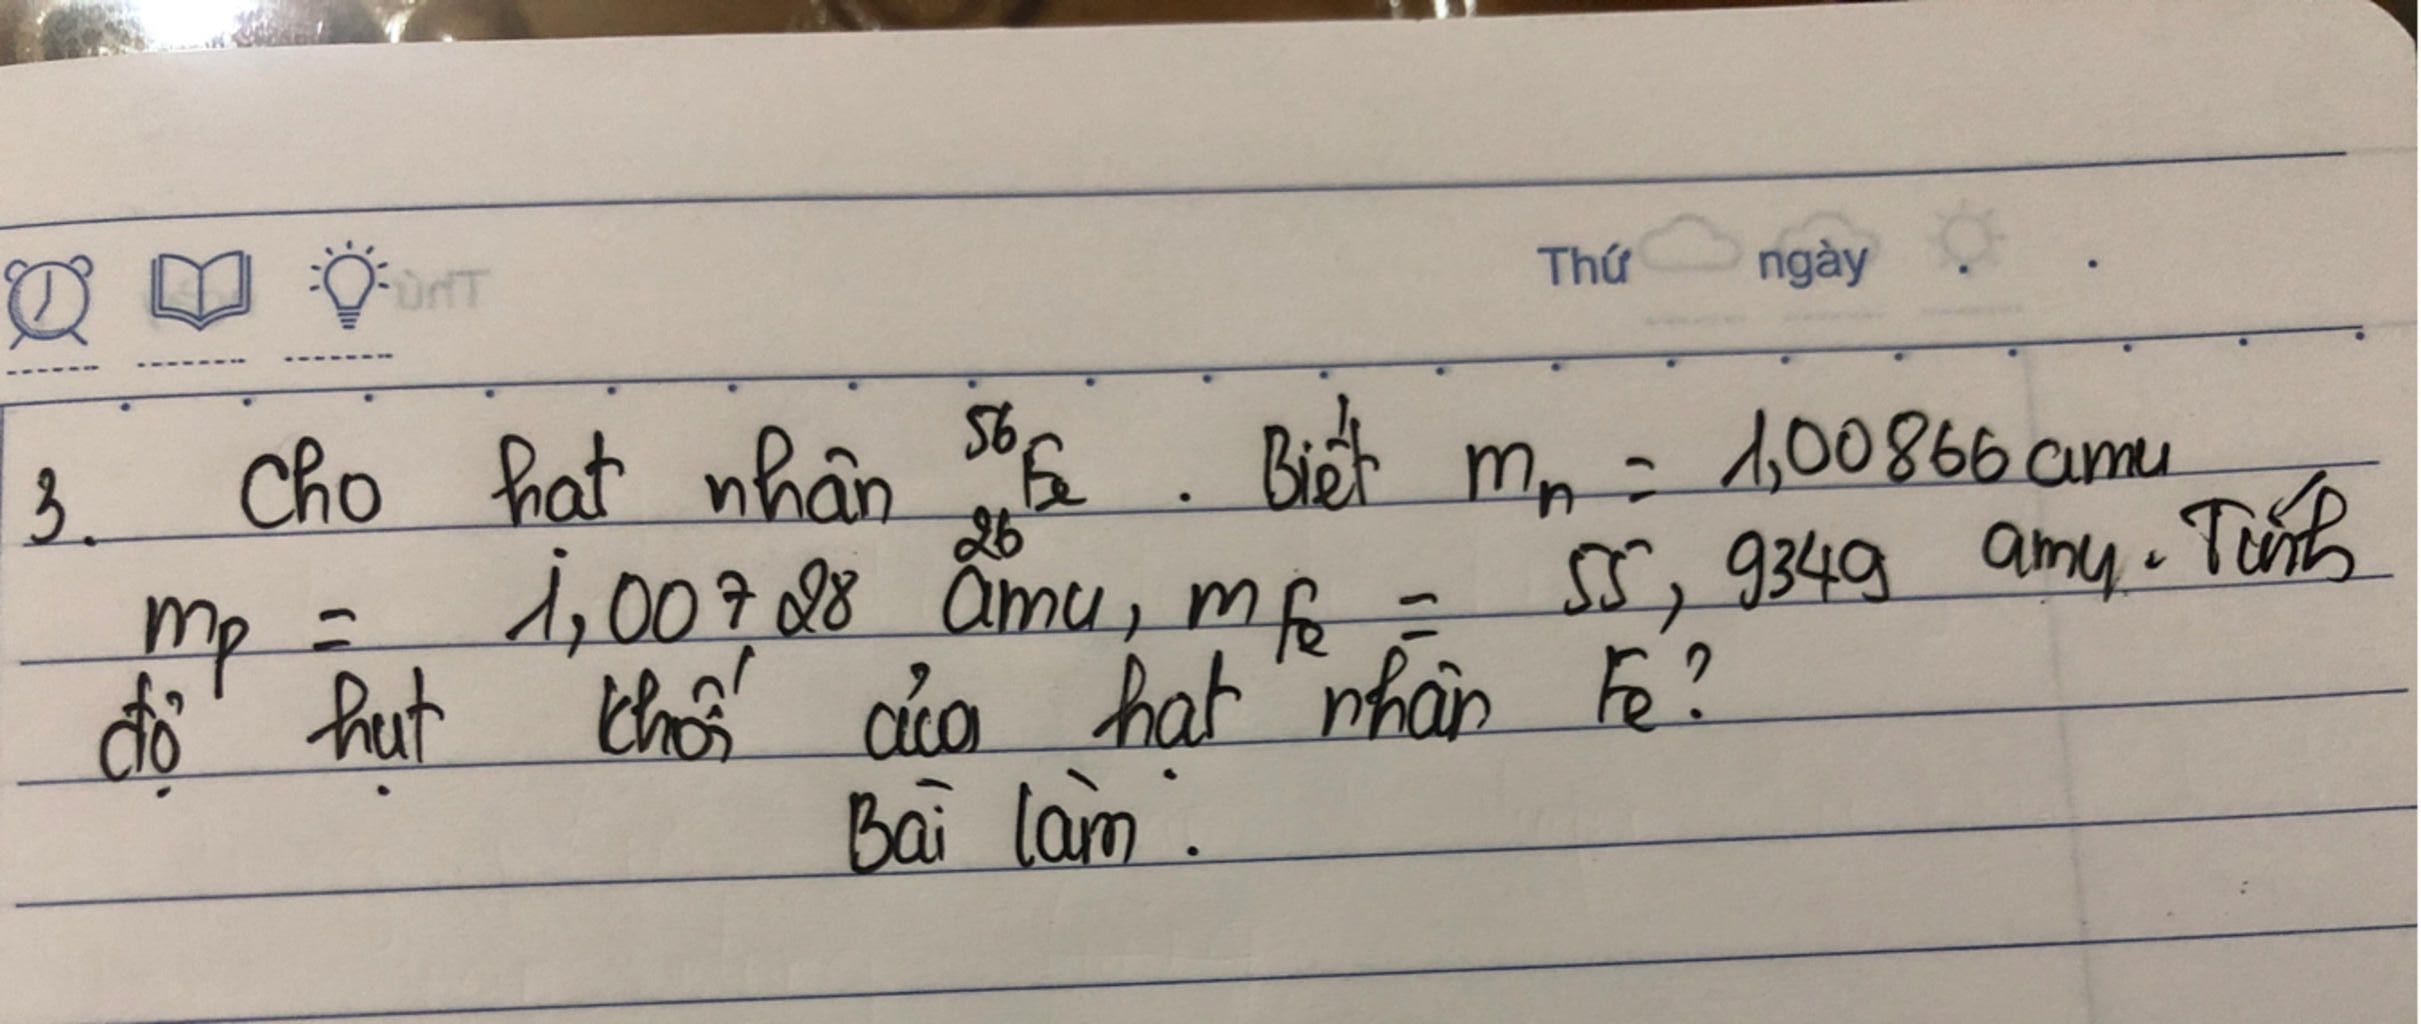 Thứ ngày . .
3. Cho hat nhân ⁵⁶₂₆Fe . Biết mₙ = 1,00866 amu
mp = 1,00728 amu, mFe = 55,9349 amu. Tính
độ hụt khối của hạt nhân Fe?
Bài làm.